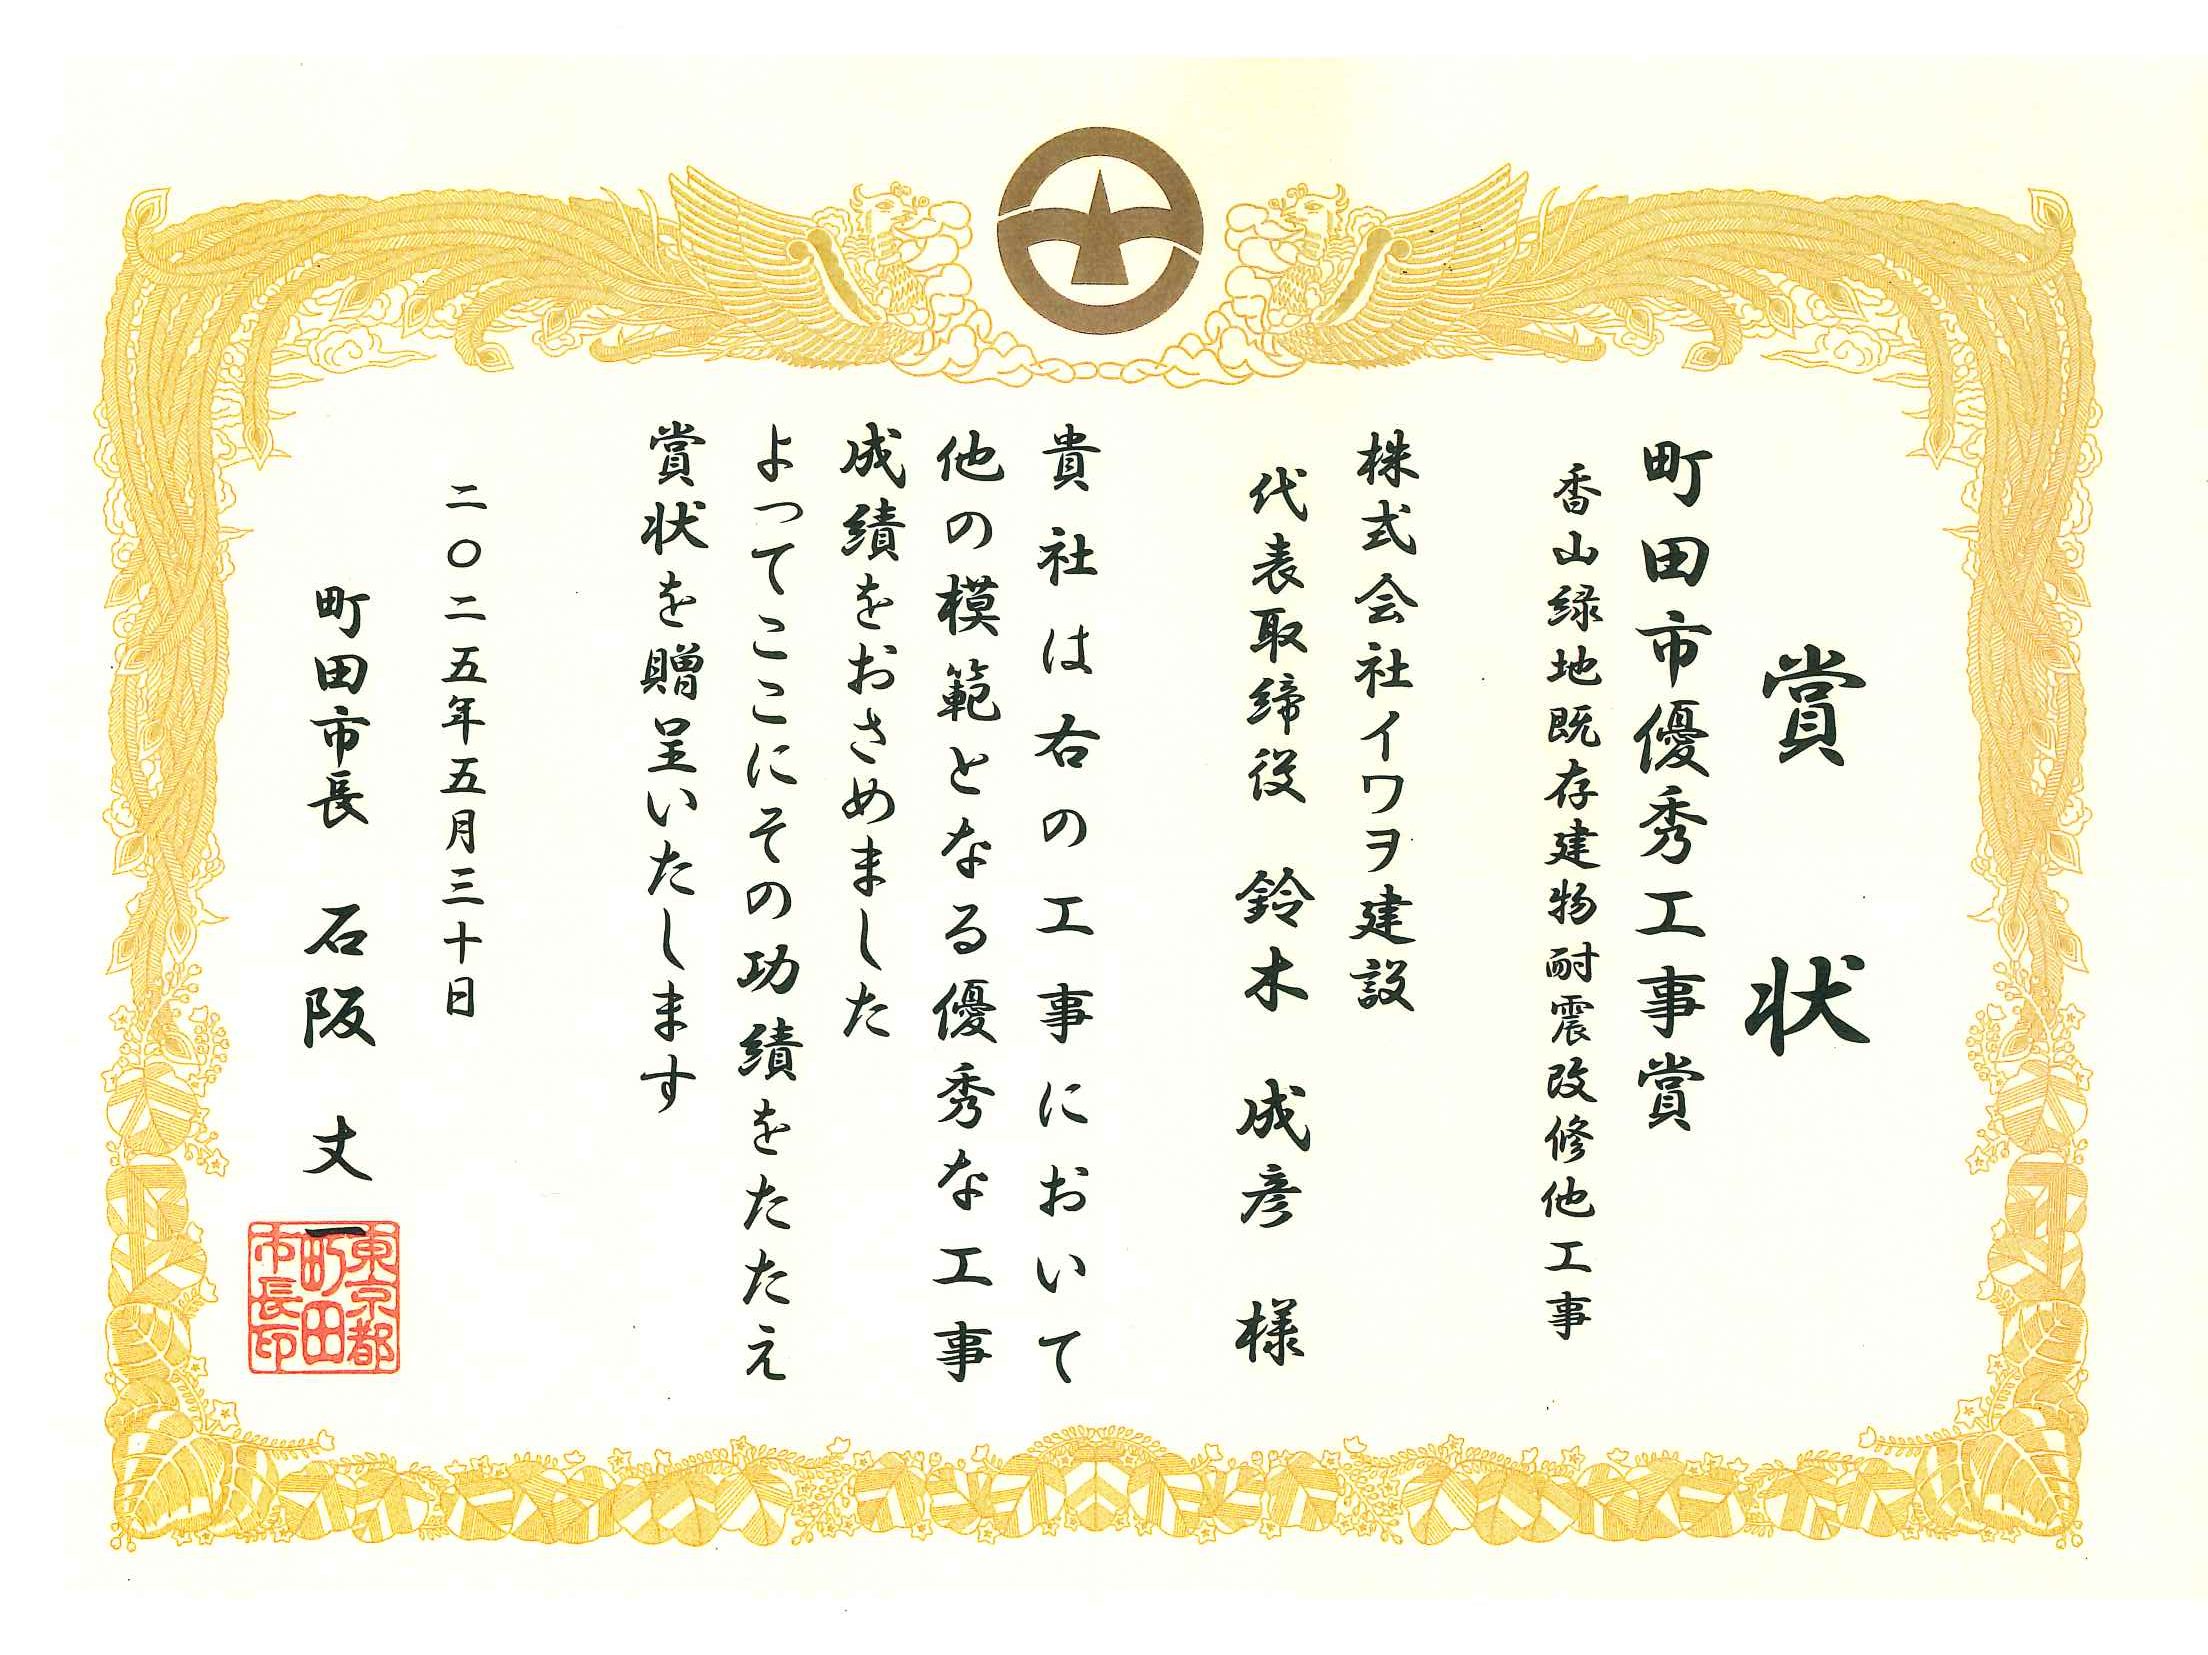 賞状
町田市優秀工事賞
香山緑地既存建物耐震改修他工事
株式会社イワヲ建設
代表取締役 鈴木 成彦 様
貴社は右の工事において
他の模範となる優秀な工事
成績をおさめました
よってここにその功績をたたえ
賞状を贈呈いたします
二〇二五年五月三十日
町田市長 石阪 丈一
東京都
町田
市長印